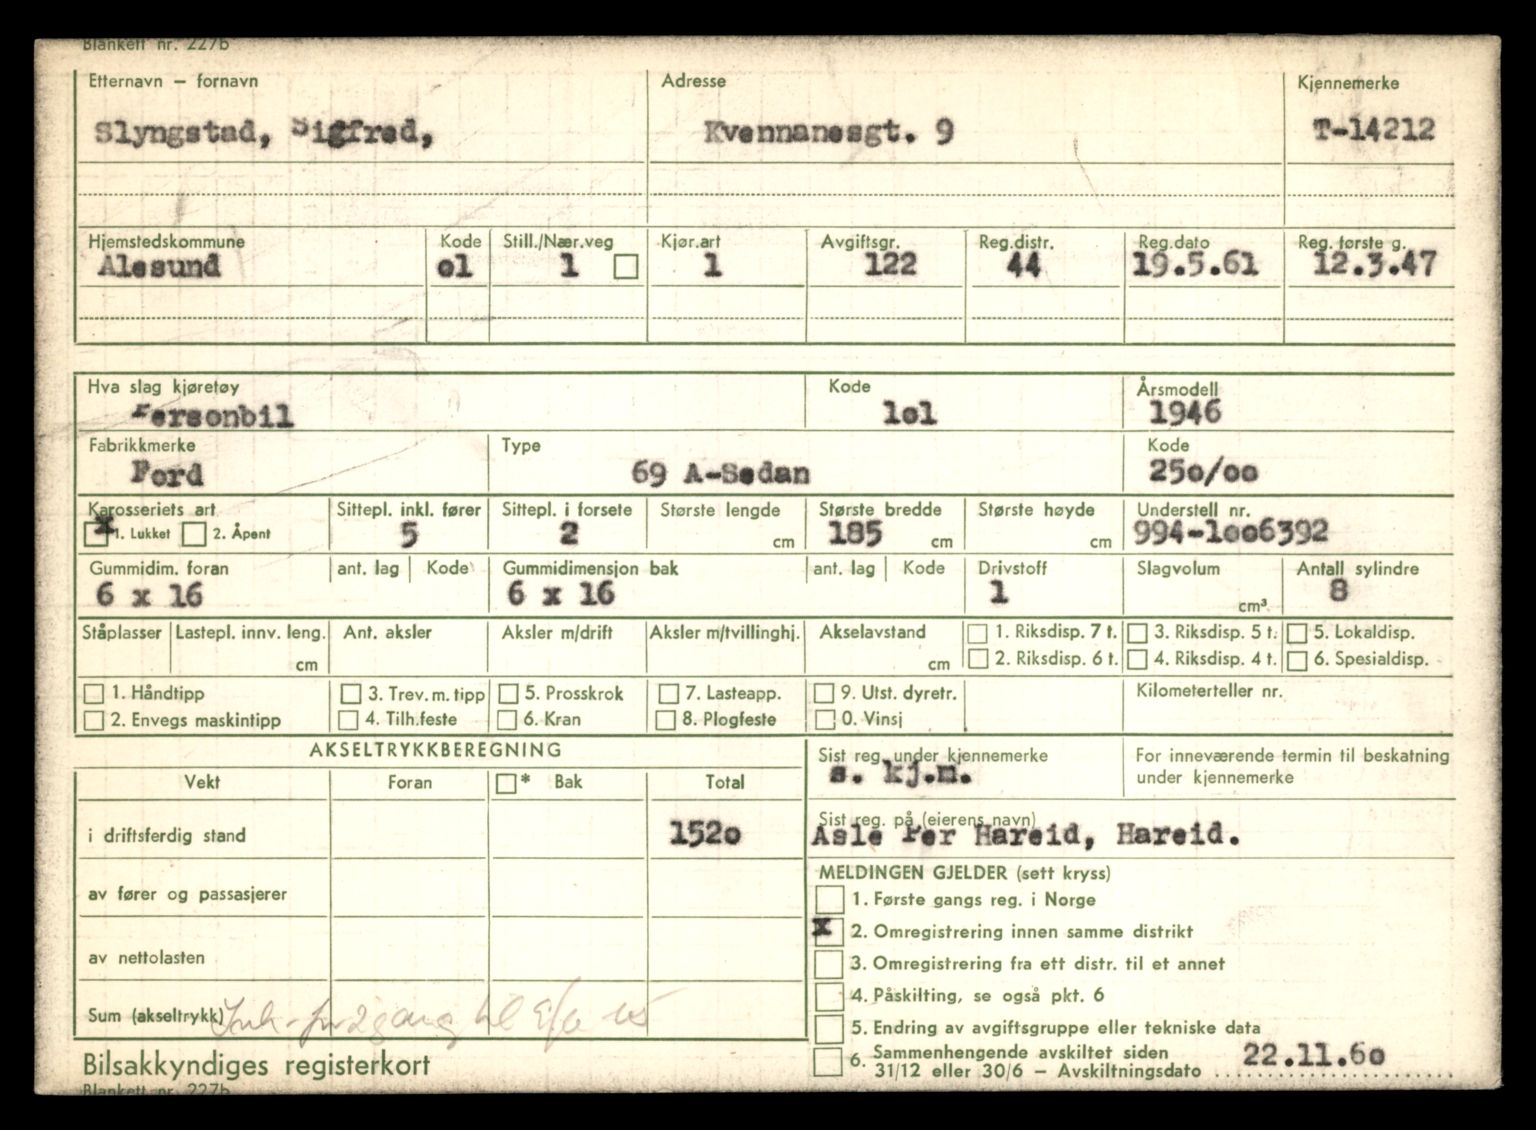 Blankett nr. 227b
Etternavn – fornavn Adresse Kjennemerke
Slyngstad, Sigfred, Kvennanesgt. 9 T-14212
Hjemstedskommune Kode Still./Nær.veg Kjør.art Avgiftsgr. Reg.distr. Reg.dato Reg. første g.
Alesund o1 1 1 122 44 19.5.61 12.3.47
Hva slag kjøretøy Kode Årsmodell
Personbil 1o1 1946
Fabrikkmerke Type Kode
Ford 69 A-Sedan 25o/oo
Karosseriets art Sittepl. inkl. fører Sittepl. i forsete Største lengde Største bredde Største høyde Understell nr.
x 1. Lukket 2. Åpent 5 2 cm 185 cm cm 994-1oo6392
Gummidim. foran ant. lag Kode Gummidimensjon bak ant. lag Kode Drivstoff Slagvolum Antall sylindre
6 x 16 6 x 16 1 cm³ 8
Ståplasser Lastepl. innv. leng. Ant. aksler Aksler m/drift Aksler m/tvillinghj. Akselavstand 1. Riksdisp. 7 t. 3. Riksdisp. 5 t. 5. Lokaldisp.
cm cm 2. Riksdisp. 6 t. 4. Riksdisp. 4 t. 6. Spesialdisp.
1. Håndtipp 3. Trev. m. tipp 5. Prosskrok 7. Lasteapp. 9. Utst. dyretr. Kilometerteller nr.
2. Envegs maskintipp 4. Tilh.feste 6. Kran 8. Plogfeste 0. Vinsj
AKSELTRYKKBEREGNING Sist reg. under kjennemerke For inneværende termin til beskatning
s. kj.m. under kjennemerke
Vekt Foran * Bak Total
Sist reg. på (eierens navn)
i driftsferdig stand 152o Asle Per Hareid, Hareid.
MELDINGEN GJELDER (sett kryss)
av fører og passasjerer 1. Første gangs reg. i Norge
x 2. Omregistrering innen samme distrikt
av nettolasten 3. Omregistrering fra ett distr. til et annet
4. Påskilting, se også pkt. 6
Sum (akseltrykk) 5. Endring av avgiftsgruppe eller tekniske data
6. Sammenhengende avskiltet siden 22.11.6o
31/12 eller 30/6 – Avskiltningsdato
Bilsakkyndiges registerkort
Blankett nr. 227b